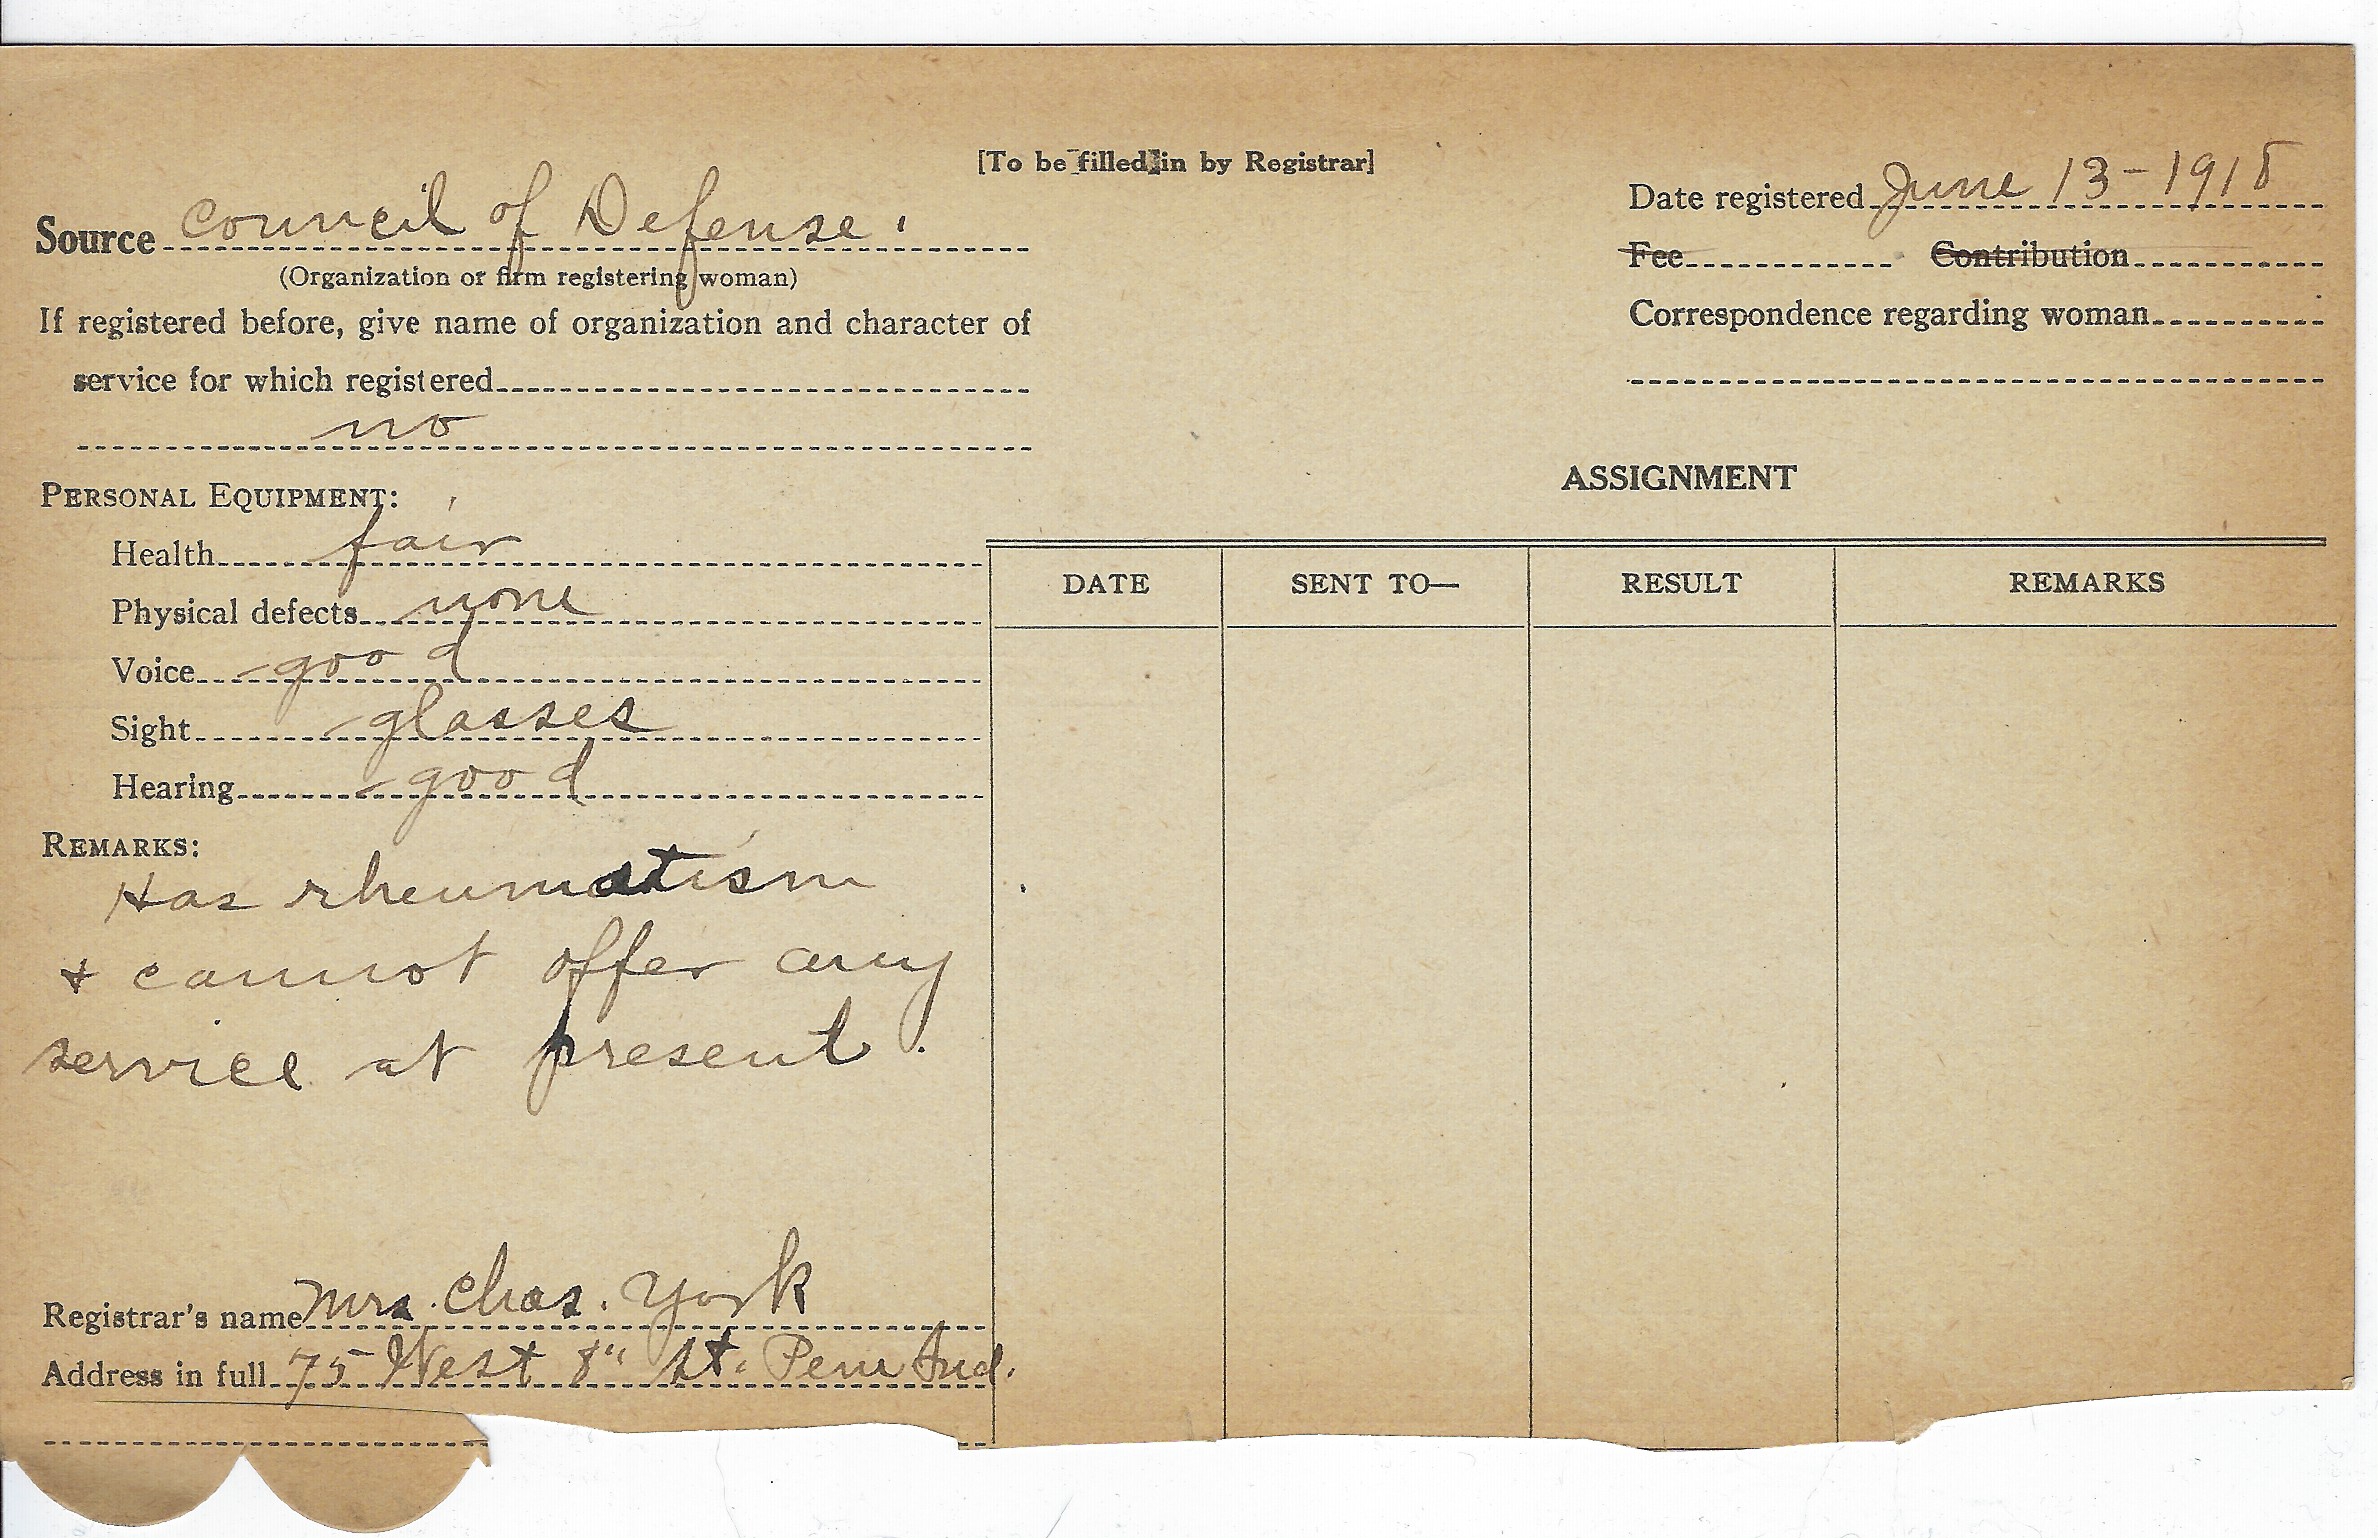 [To be filled in by Registrar]
Source Council of Defense.
(Organization or firm registering woman)
If registered before, give name of organization and character of
service for which registered
no
PERSONAL EQUIPMENT:
Health fair
Physical defects none
Voice good
Sight glasses
Hearing good
REMARKS:
Has rheumatism
+ cannot offer any
service at present.
Registrar's name Mrs. Chas. York
Address in full 75 West 8" St. Peru Ind.
Date registered June 13-1918
Fee Contribution
Correspondence regarding woman
ASSIGNMENT
DATE SENT TO— RESULT REMARKS